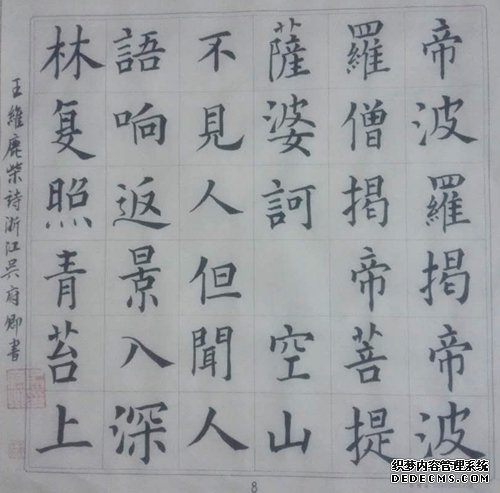 帝波羅揭帝波
羅僧揭帝菩提
薩婆訶 空山
不見人但聞人
語响返景入深
林复照青苔上
王維鹿柴诗浙江吴府卿書
8
织梦内容管理系统
DEDECMS.COM